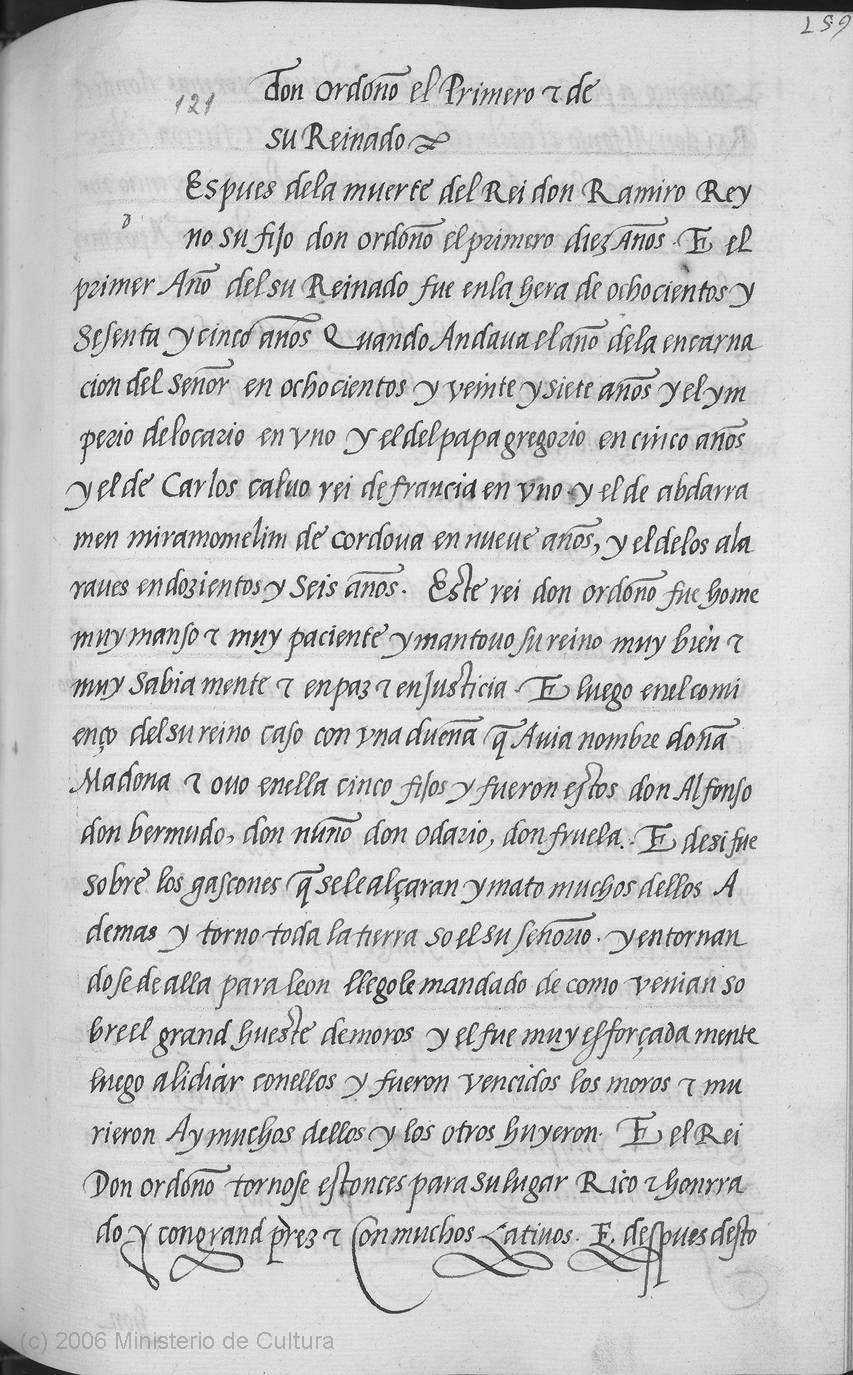 159
121
don ordoño el Primero τ de
su Reinado
Espues dela muerte del Rei don Ramiro Rey
d
no su fijo don ordoño el primero diez Años. E el
primer Año del su Reinado fue enla hera de ochocientos y
Sesenta y cinco años Quando Andaua el año dela encarna
cion del señor en ochocientos y veinte y siete años y el ym
perio delocario en vno y el del papa gregorio en cinco años
y el de Carlos caluo rei de francia en vno y el de abdarra
men miramomelim de cordoua en nueue años, y el delos ala
raues en dozientos y Seis años. Este rei don ordoño fue home
muy manso τ muy paciente y mantouo su reino muy bien τ
muy Sabia mente τ en paz τ en Justicia. E luego enel comi
enço del su reino caso con vna dueña q̃ Auia nombre doña
Madona τ ouo enella cinco fijos y fueron estos don Alfonso
don bermudo, don nuño don odario, don fruela. E desi fue
sobre los gascones q̃ sele alçaran y mato muchos dellos A
demas y torno toda la tierra so el su señorio. y en tornan
dose de alla para leon llegole mandado de como venian so
breel grand hueste de moros y el fue muy esforçada mente
luego a lidiar conellos y fueron vencidos los moros τ mu
rieron Ay muchos dellos y los otros huyeron. E el Rei
Don ordoño tornose estonces para su lugar Rico τ honrra
do y con grand prez τ Con muchos Cativos. E. despues desto
(c) 2006 Ministerio de Cultura